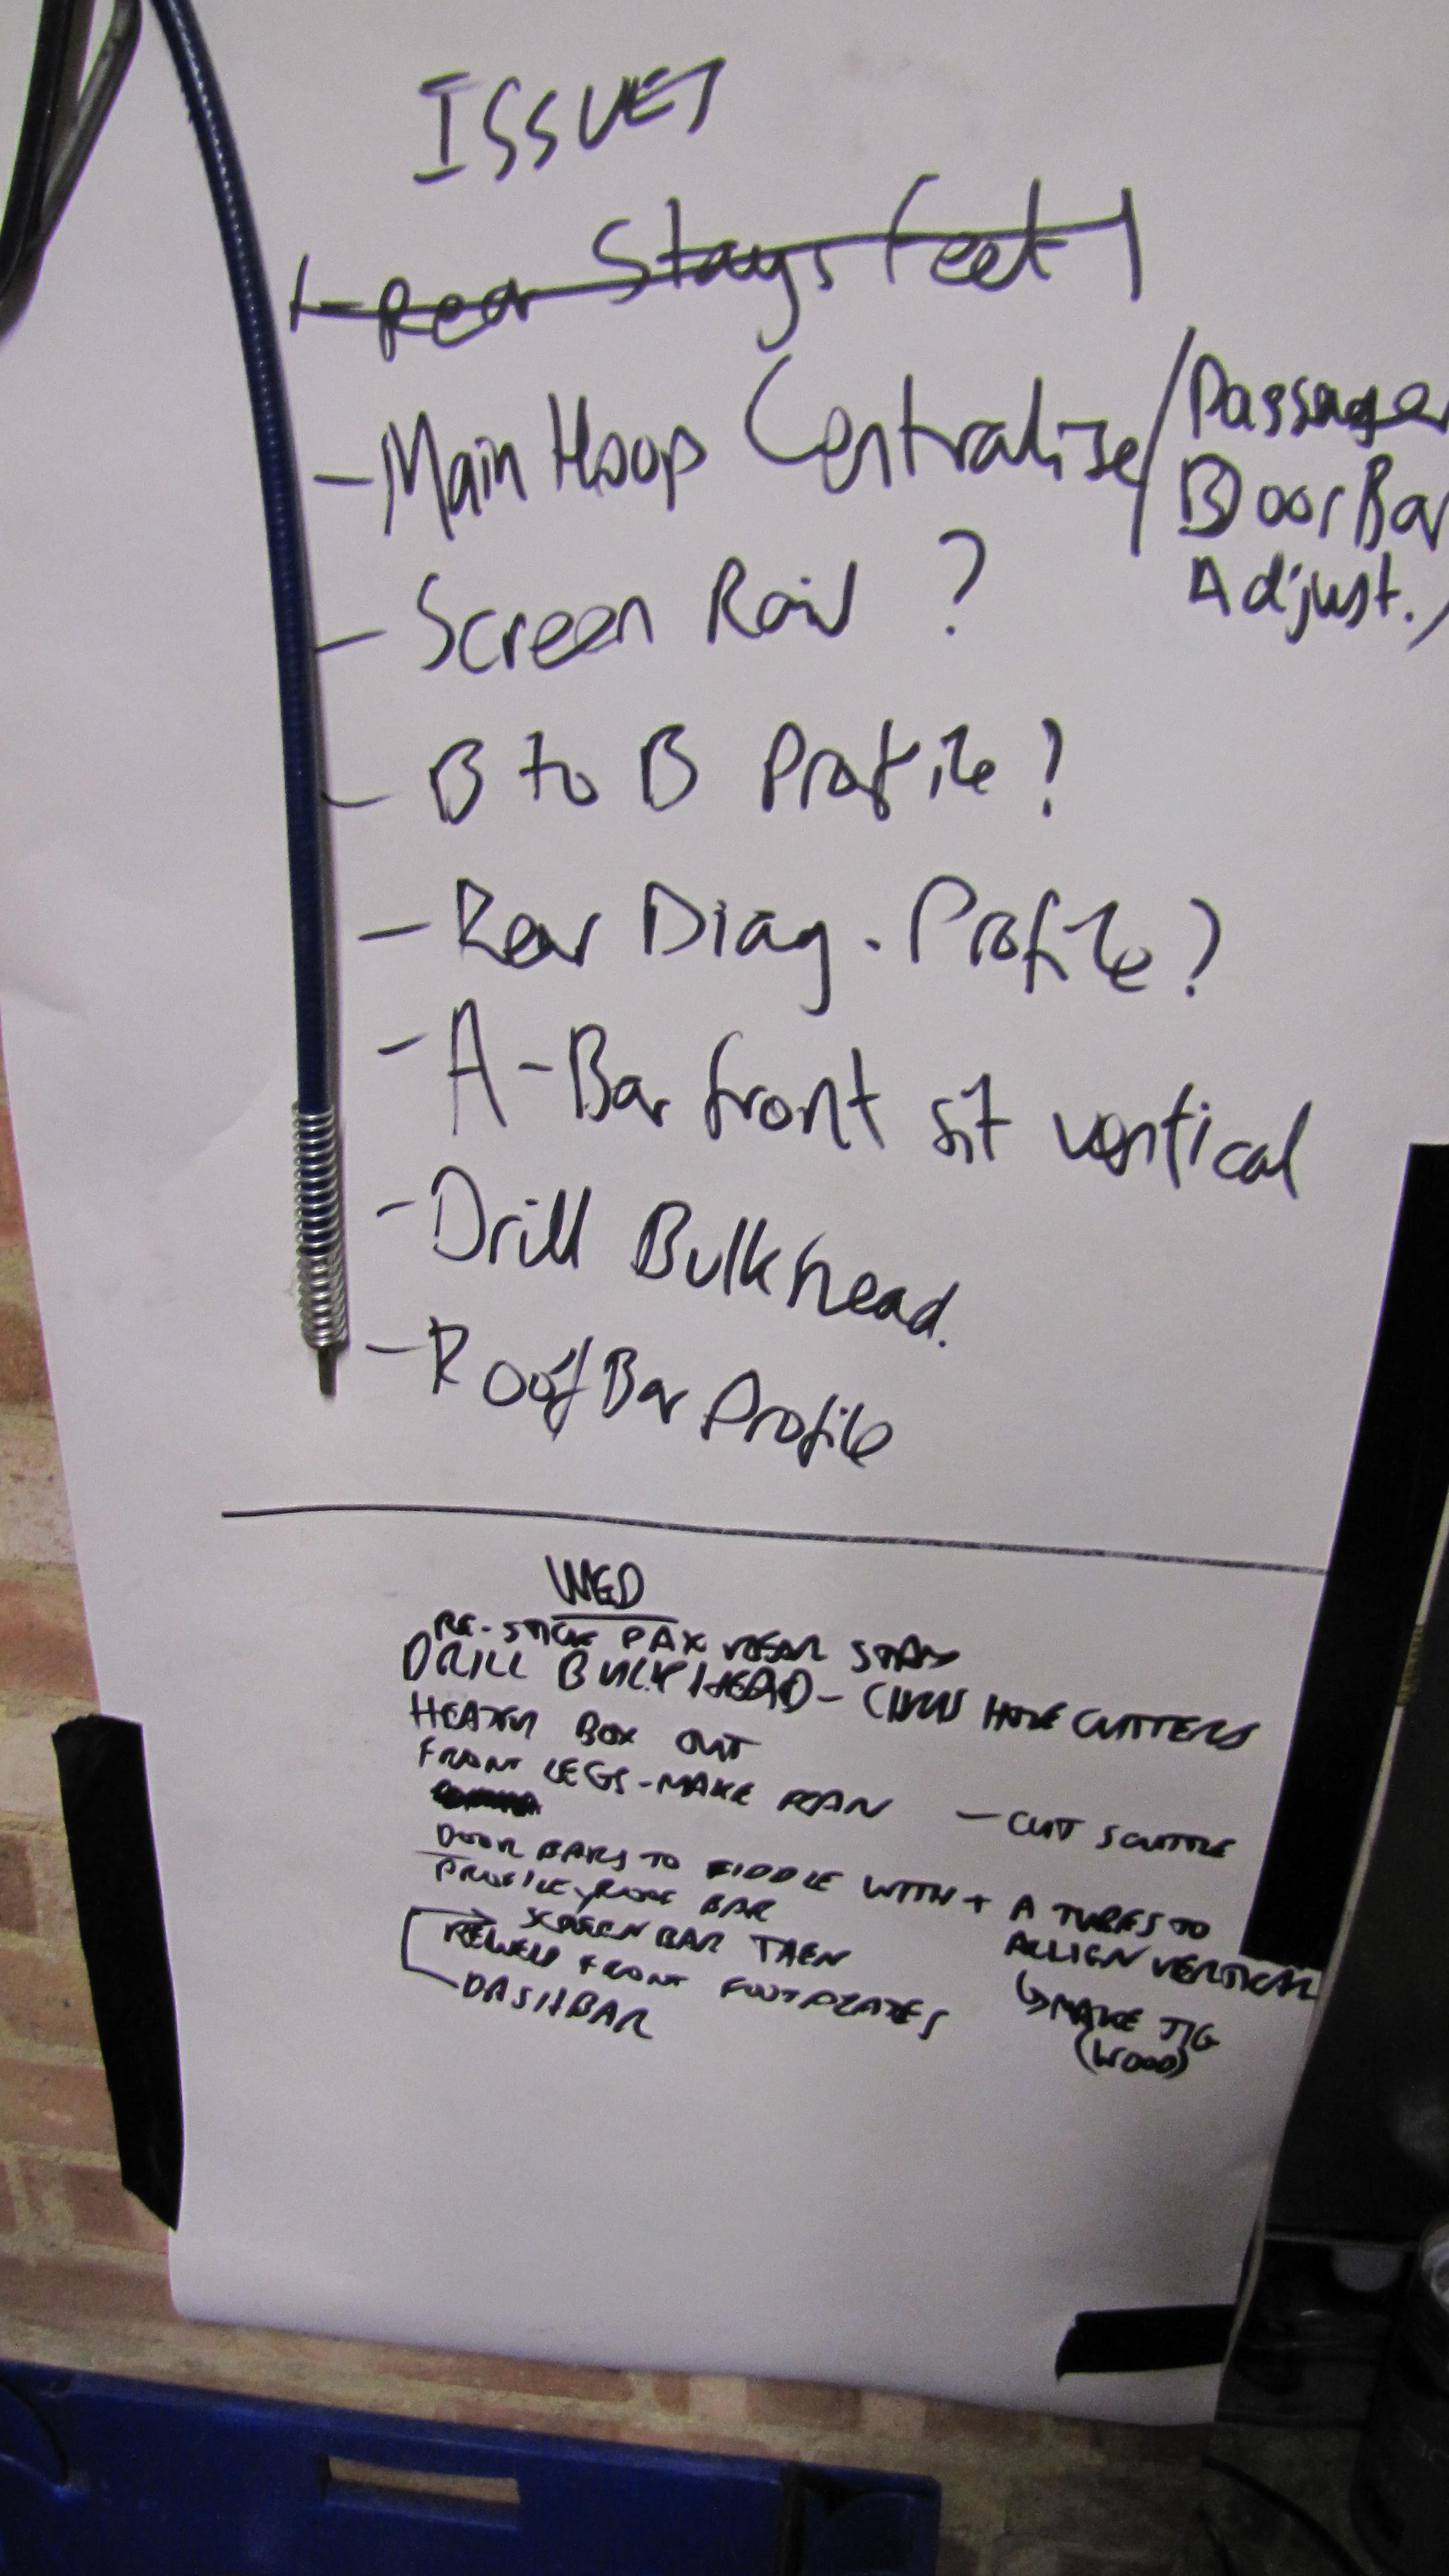 ISSUES
- Rear Stays feet
- Main Hoop Centralise / Passenger
Door Bar
Adjust.
- Screen Rail ?
- B to B Profile ?
- Rear Diag. Profile ?
- A-Bar front sit vertical
- Drill Bulkhead.
- Roof Bar Profile
WED
RE-STICK PAX REAR STAY
DRILL BULKHEAD - HOLE CUTTERS
HEATER BOX OUT
FRONT LEGS - MAKE PLAN - CUT SCUTTLE
DOOR BARS TO FIDDLE WITH + A TUBES TO
ALLIGN VERTICAL
↳ MAKE JIG
(WOOD)
PROFILE ROOF BAR
→ SCREEN BAR THEN
REWELD FRONT FOOTPLATES
DASHBAR